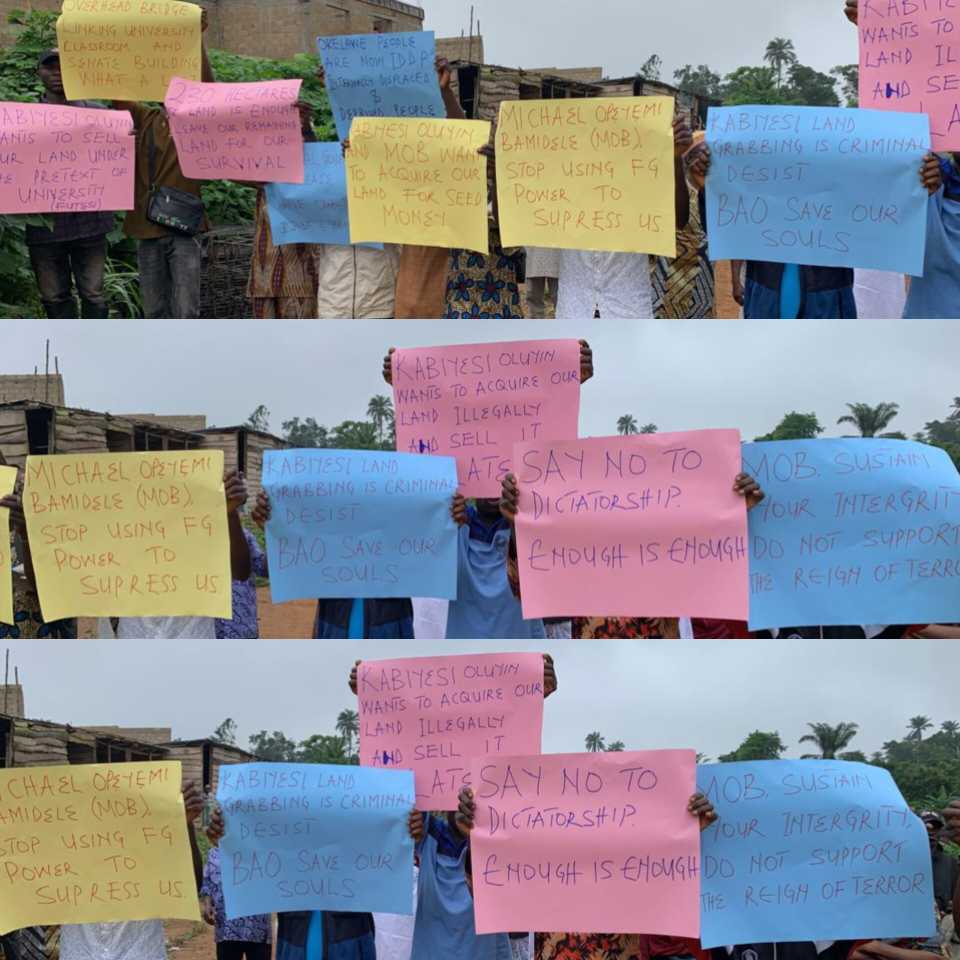 OVERHEAD BRIDGE
LINKING UNIVERSITY
CLASSROOM AND
SENATE BUILDING
WHAT A
KABIYESI OLUYIN
WANTS TO SELL
OUR LAND UNDER
THE PRETEXT OF
UNIVERSITY
(FUTESI)
230 HECTARES
LAND IS ENOUGH
LEAVE OUR REMAINING
LAND FOR OUR
SURVIVAL
OKELAWE PEOPLE
ARE NOW IDDP
INTERNALLY DISPLACED
&
DEPRIVED PEOPLE
KABIYESI OLUYIN
AND MOB WANT
TO ACQUIRE OUR
LAND FOR SEED
MONEY
MICHAEL OPEYEMI
BAMIDELE (MOB),
STOP USING FG
POWER TO
SUPRESS US.
KABIYESI LAND
GRABBING IS CRIMINAL
DESIST
BAO SAVE OUR
SOULS
KABIYE
WANTS TO
LAND ILL
AND SE
LA
KABIYESI OLUYIN
WANTS TO ACQUIRE OUR
LAND ILLEGALLY
AND SELL IT
LATE
MICHAEL OPEYEMI
BAMIDELE (MOB),
STOP USING FG
POWER TO
SUPRESS US.
KABIYESI LAND
GRABBING IS CRIMINAL
DESIST
BAO SAVE OUR
SOULS
SAY NO TO
DICTATORSHIP.
ENOUGH IS ENOUGH
MOB. SUSTAIN
YOUR INTERGRIT
DO NOT SUPPORT
THE REIGN OF TERRO
KABIYESI OLUYIN
WANTS TO ACQUIRE OUR
LAND ILLEGALLY
AND SELL IT
LATE
ICHAEL OPEYEMI
AMIDELE (MOB),
STOP USING FG
POWER TO
SUPRESS US.
KABIYESI LAND
GRABBING IS CRIMINAL
DESIST
BAO SAVE OUR
SOULS
SAY NO TO
DICTATORSHIP.
ENOUGH IS ENOUGH
MOB. SUSTAIN
YOUR INTERGRITY,
DO NOT SUPPORT
THE REIGN OF TERROR